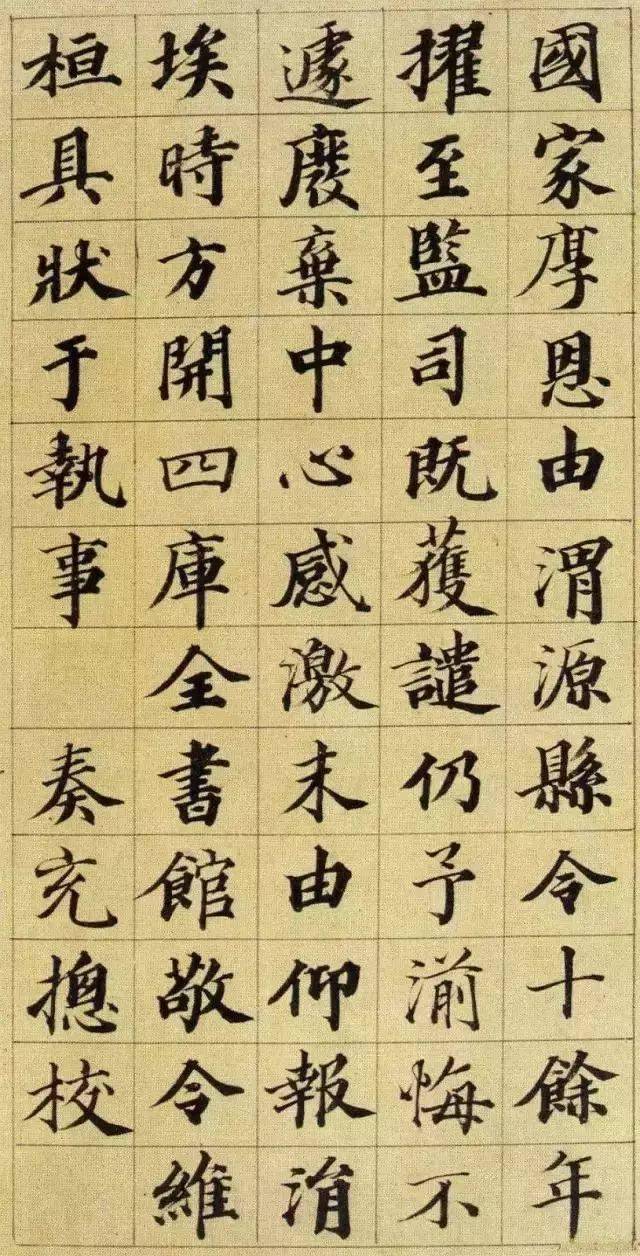 國家厚恩由渭源縣令十餘年
擢至監司既獲譴仍予湔悔不
遽廢棄中心感激末由仰報涓
埃時方開四庫全書館敬令維
桓具狀于執事 奏充揔校